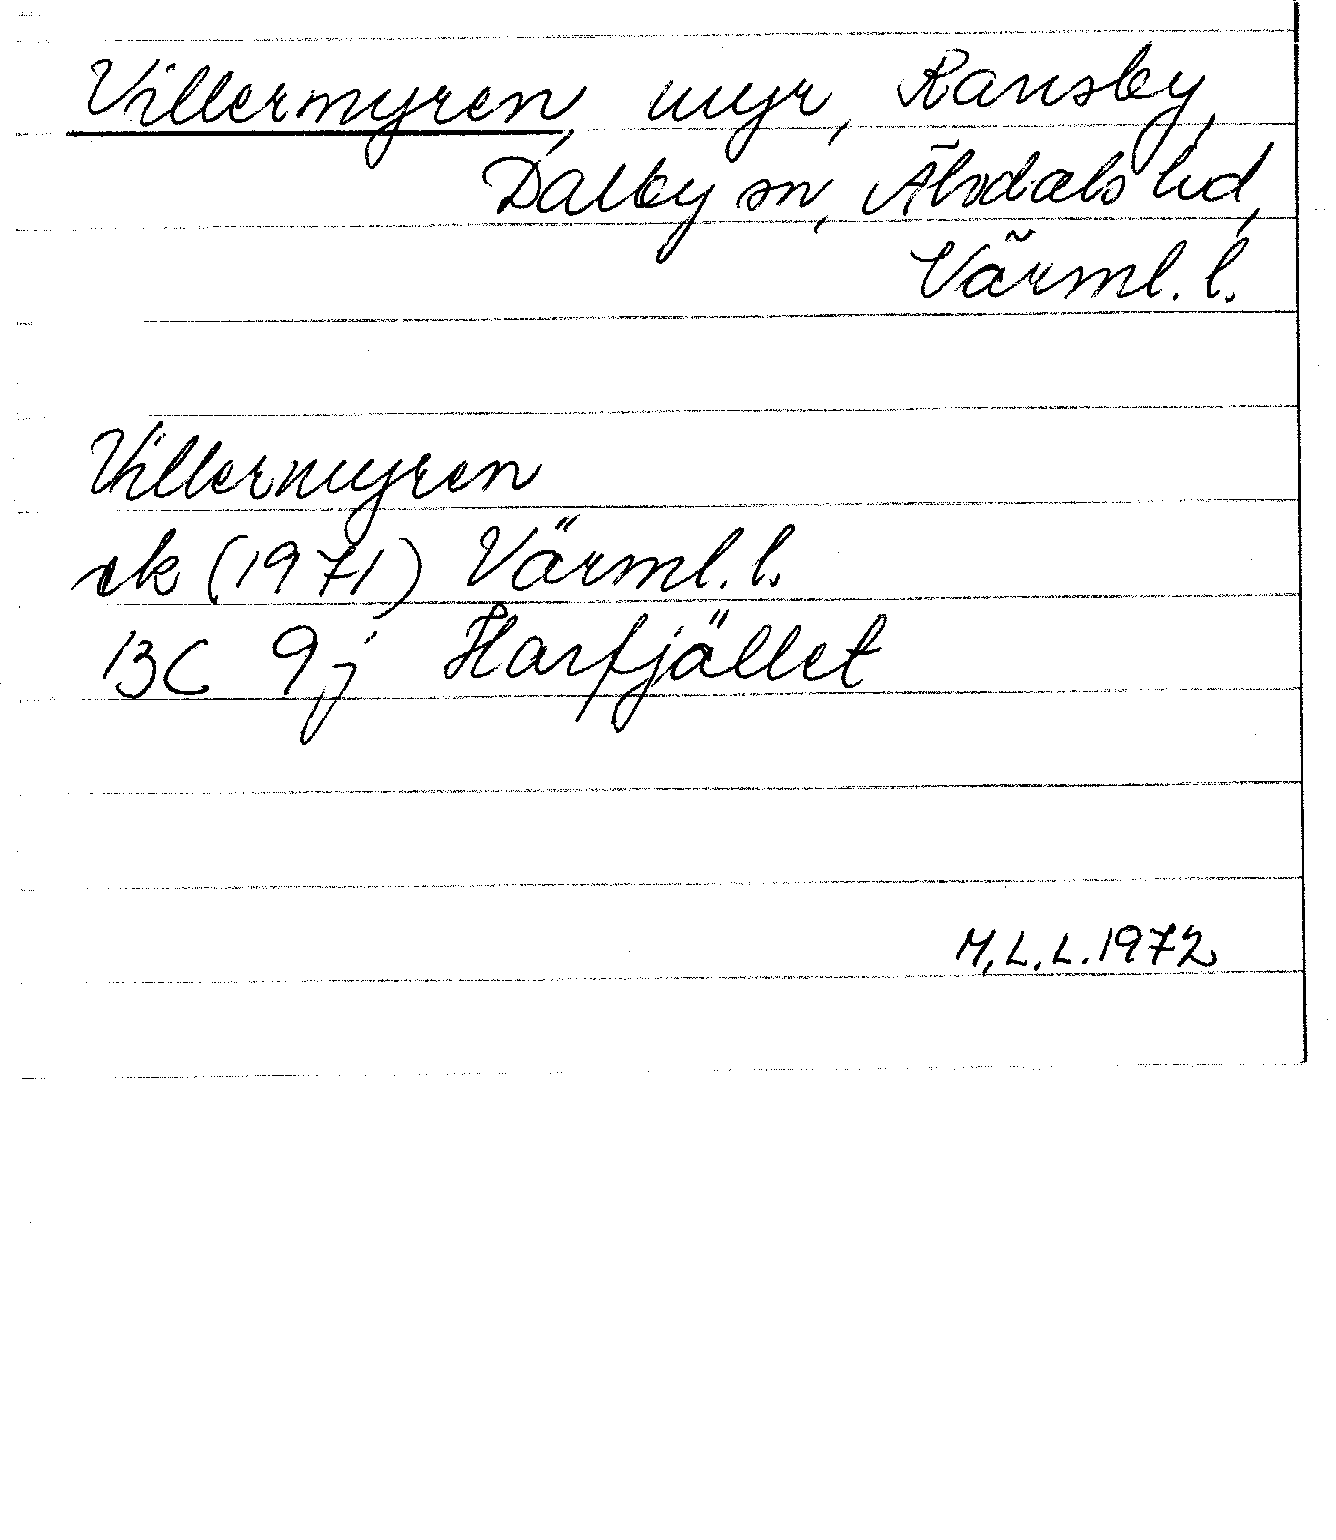 Villermyren, myr, Ransby,
Dalby sn, Älvdals hd,
Värml. l.
Villermyren
ek (1971) Värml. l.
13C 9j Harfjället
M.L.L. 1972